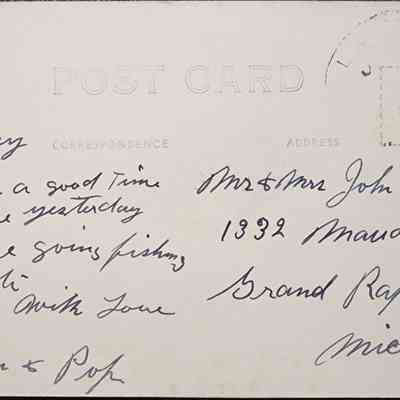 POST CARD
CORRESPONDENCE
ADDRESS
a good Time
yesterday
going fishing
With Love
& Pop
Mr & Mrs John
1332
Grand Rap
Mic